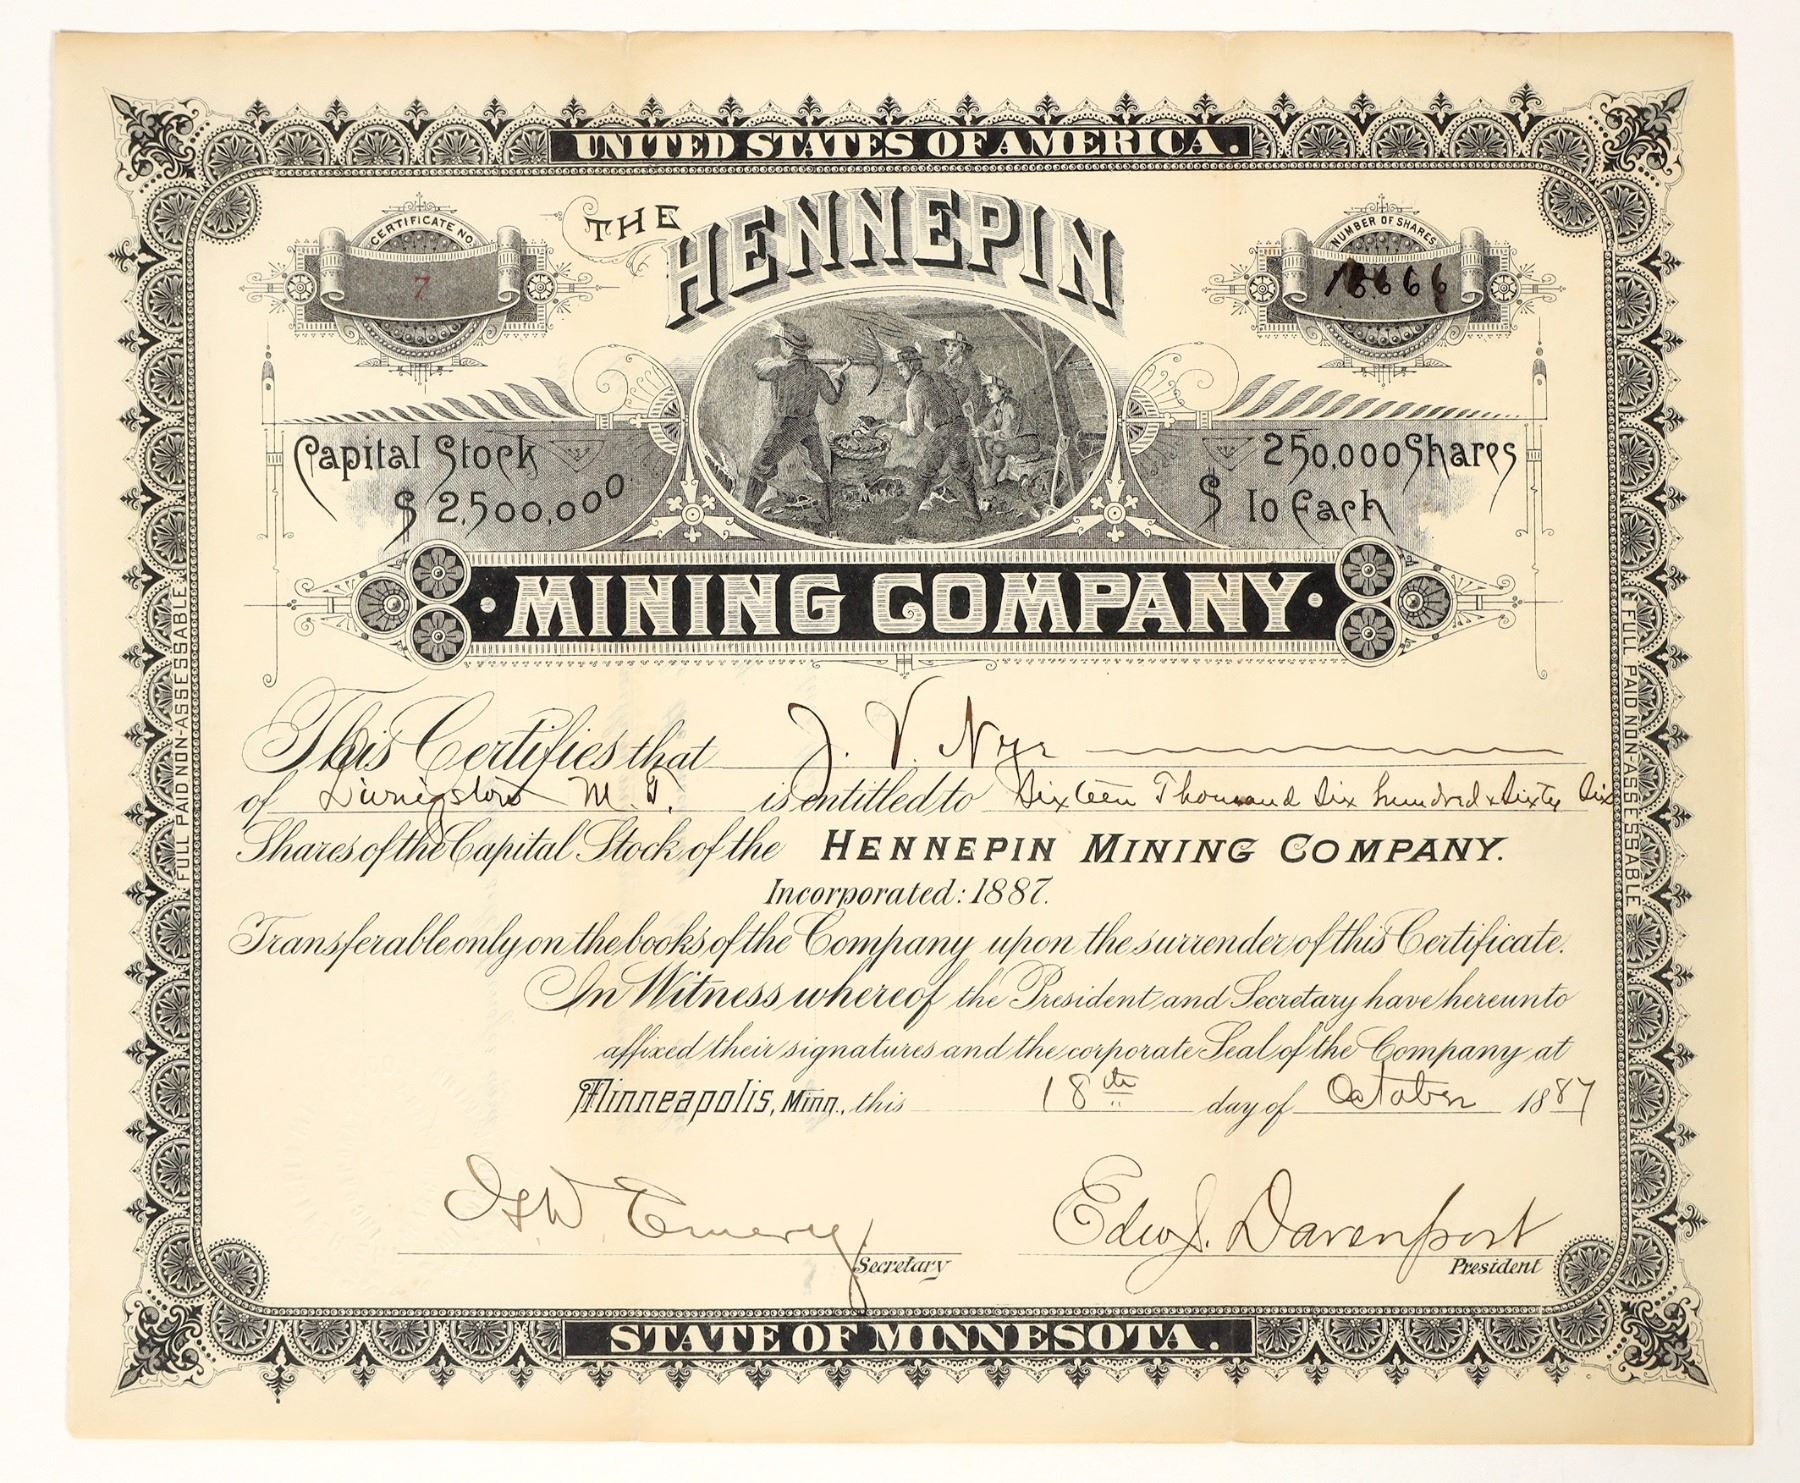 UNITED STATES OF AMERICA.
CERTIFICATE NO.
7
THE HENNEPIN
NUMBER OF SHARES
16666
Capital Stock
$ 2,500,000
250,000 Shares
$ 10 Each
· MINING COMPANY ·
FULL PAID NON-ASSESSABLE
FULL PAID NON-ASSESSABLE
This Certifies that J. V. Nye
of Livingston M. T. is entitled to Sixteen Thousand Six hundred & Sixty Six
Shares of the Capital Stock of the HENNEPIN MINING COMPANY.
Incorporated: 1887.
Transferable only on the books of the Company upon the surrender of this Certificate.
In Witness whereof the President and Secretary have hereunto
affixed their signatures and the corporate Seal of the Company at
Minneapolis, Minn., this 18th day of October 1887
W Emery Secretary
Edw J. Davenport President
STATE OF MINNESOTA.